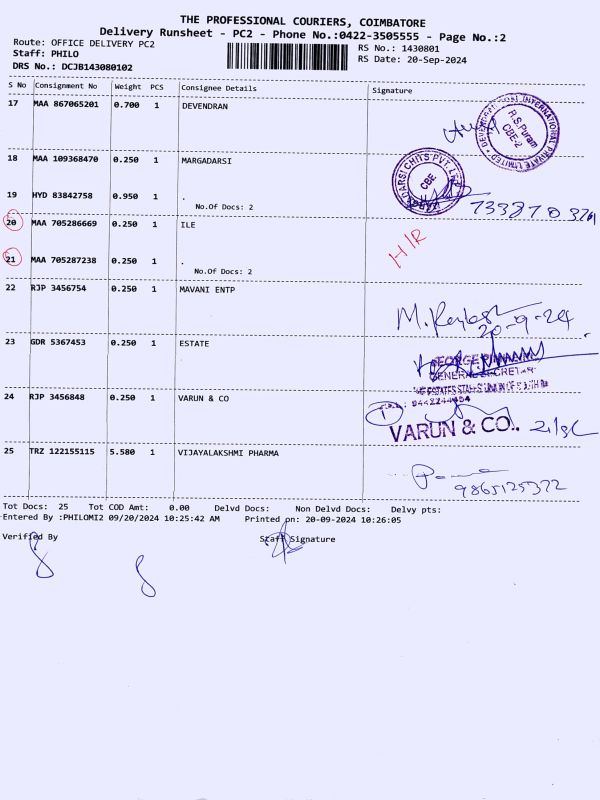 THE PROFESSIONAL COURIERS, COIMBATORE
Delivery Runsheet - PC2 - Phone No.:0422-3505555 - Page No.:2
Route: OFFICE DELIVERY PC2
RS No.: 1430801
Staff: PHILO
RS Date: 20-Sep-2024
DRS No.: DCJB143080102
S No Consignment No Weight PCS Consignee Details Signature
17 MAA 867065201 0.700 1 DEVENDRAN
R.S.Puram
CBE-2
18 MAA 109368470 0.250 1 MARGADARSI
CBE
19 HYD 83842758 0.950 1 .
No.Of Docs: 2
20 MAA 705286669 0.250 1 ILE
H/R
21 MAA 705287238 0.250 1 .
No.Of Docs: 2
22 RJP 3456754 0.250 1 MAVANI ENTP
20-9-24
23 GDR 5367453 0.250 1 ESTATE
24 RJP 3456848 0.250 1 VARUN & CO
VARUN & CO..
25 TRZ 122155115 5.580 1 VIJAYALAKSHMI PHARMA
9865125372
Tot Docs: 25 Tot COD Amt: 0.00 Delvd Docs: Non Delvd Docs: Delvy pts:
Entered By :PHILOMI2 09/20/2024 10:25:42 AM Printed on: 20-09-2024 10:26:05
Verified By Staff Signature